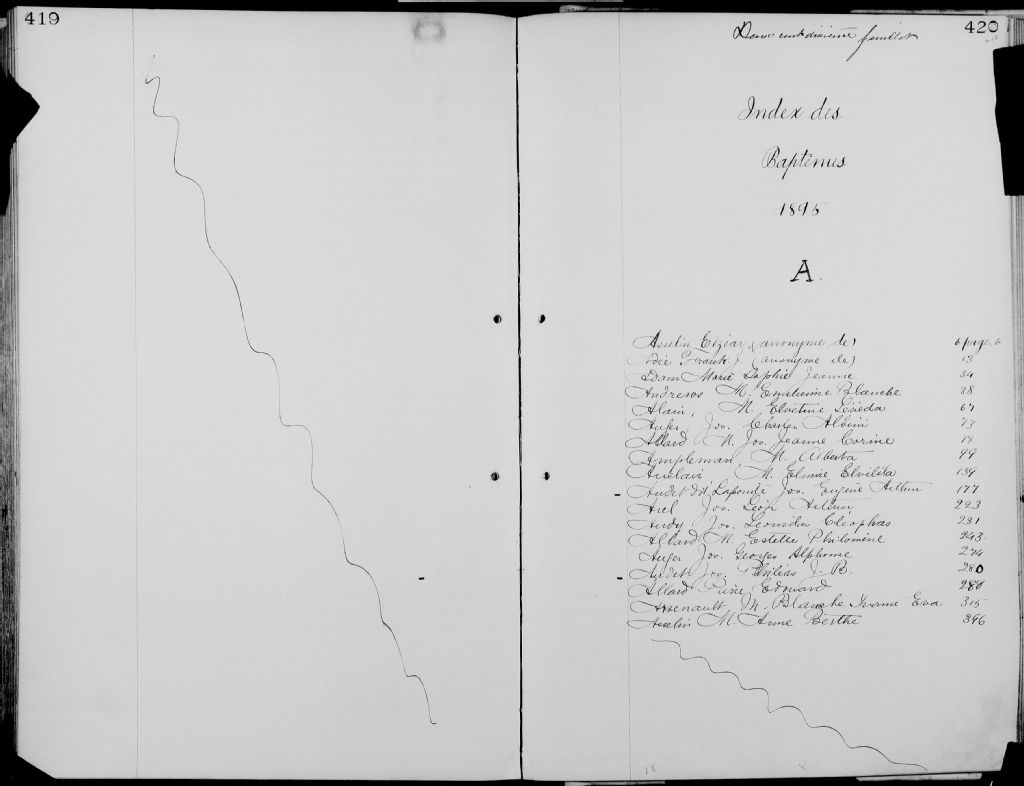 419
420
Deux cent dixième feuillet
Index des
Baptêmes
1895
A.
Asselin Elzéar, (anonyme de) 6 page. 6
Adée Frank.) (anonyme de) 13
Adam Marie Sophie Jeanne 34
Andrews M. Emilienne Blanche 38
Alain, M. Elvetine 67
Auger, Jos. Charles Albini 73
Allard M. Jos. Jeanne Corine 78
Ampleman, M. Alberta 99
Auclair, M. Elmire Elvilita 139
Audet dit Lapointe Jos. Eugène Arthur 177
Arel Jos. Léon Arthur 223
Audy Jos. Leonidas Cléophas 231
Allard M. Estelle Philomène 243
Auger Jos. Georges Alphonse 274
Audet Jos. Philéas J. B. 280
Allard Pierre Edouard 280
Arsenault M. Blanche Ivonne Eva 315
Asselin M. Anne Berthe 396